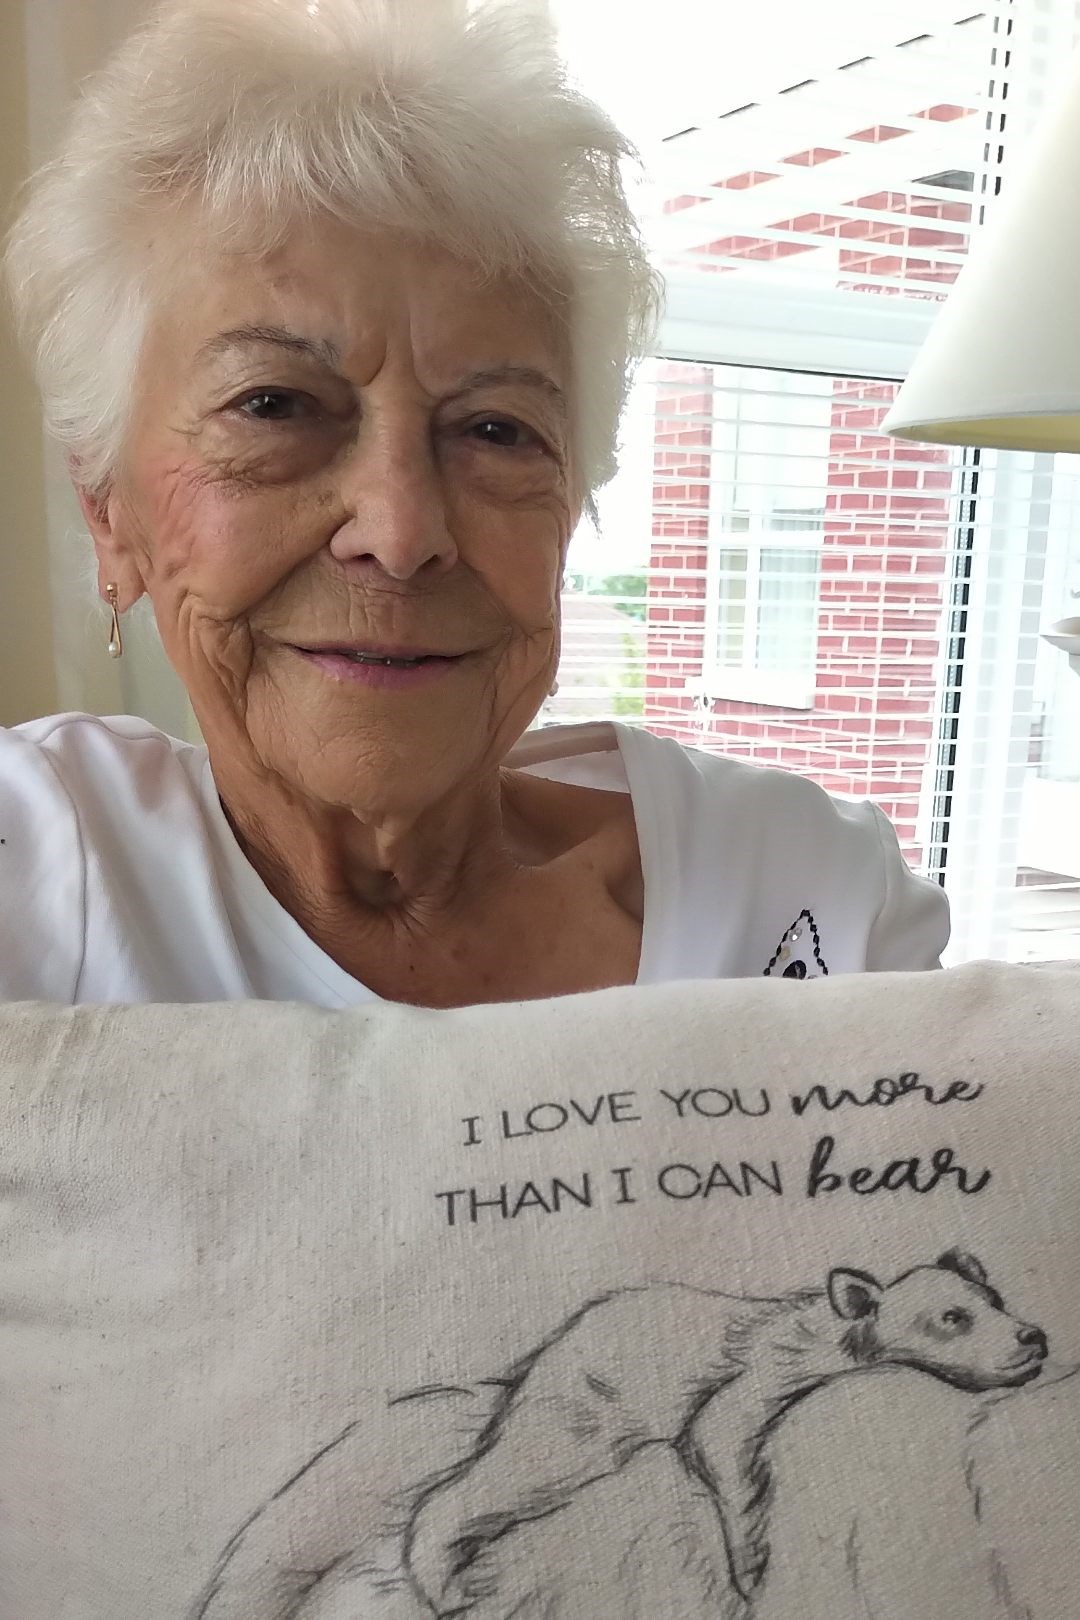 I LOVE YOU more
THAN I CAN bear